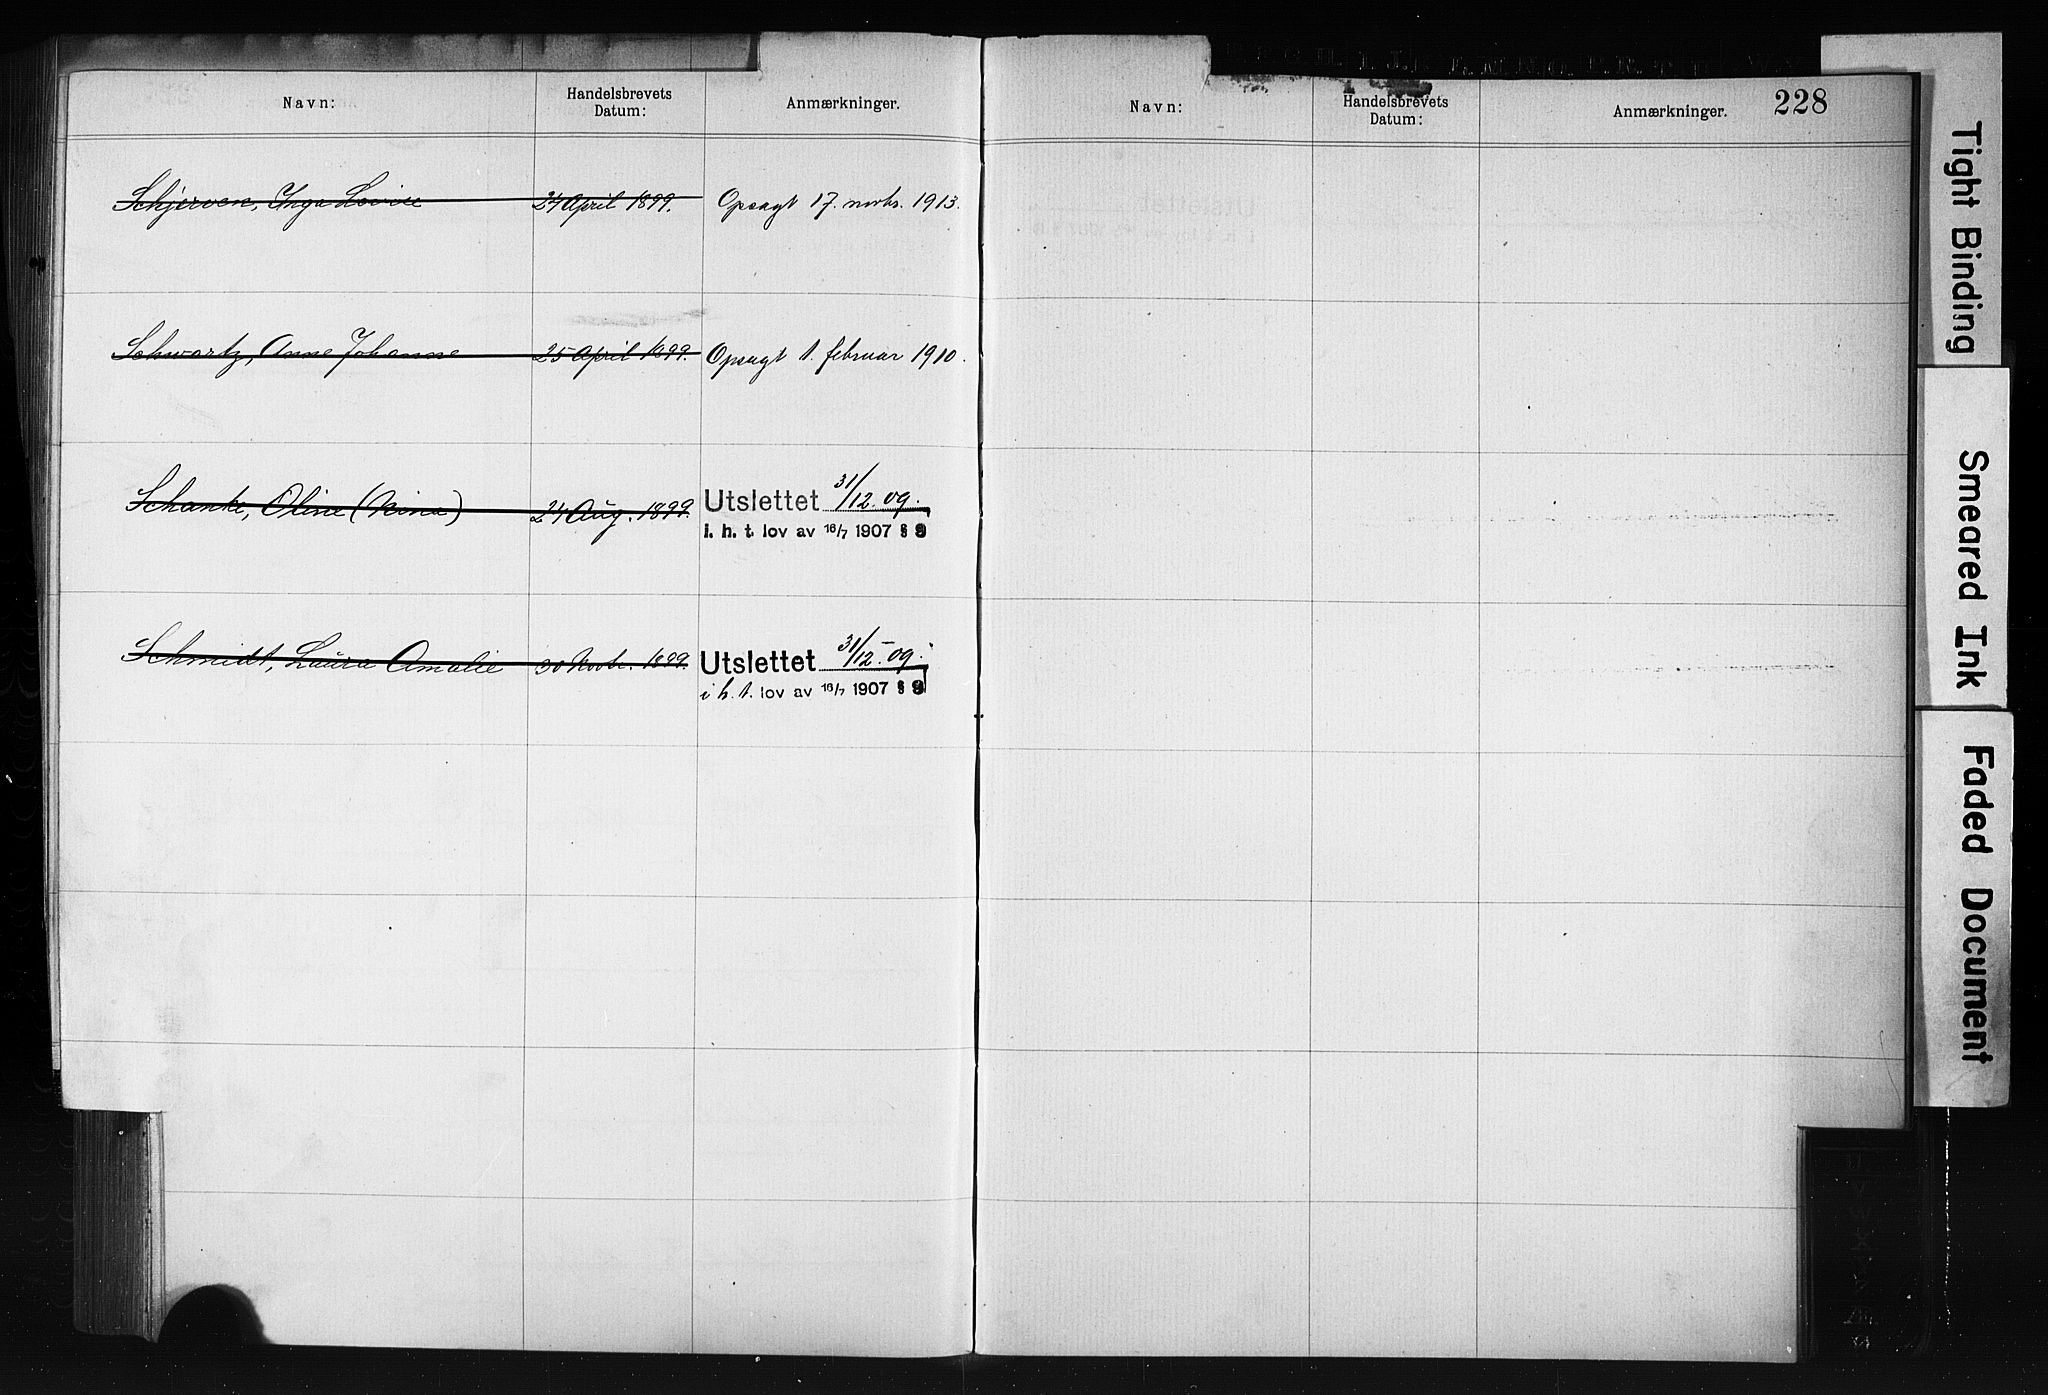 Navn: Handelsbrevets Datum: Anmærkninger.
Schjerven, Inga Lovise 24 April 1899. Opsagt 17. novbr. 1913.
Schwartz, Anne Johanne 25 April 1899. Opsagt 1. februar 1910.
Schanke, Oline (Nina) 24 Aug. 1899. Utslettet 31/12.09.
i. h. t. lov av 16/7 1907 § 9
Schmidt, Laura Amalie 30 Novbr. 1899. Utslettet 31/12.09.
i h. t. lov av 16/7 1907 § 9
Navn: Handelsbrevets Datum: Anmærkninger. 228
Tight Binding
Smeared Ink
Faded Document